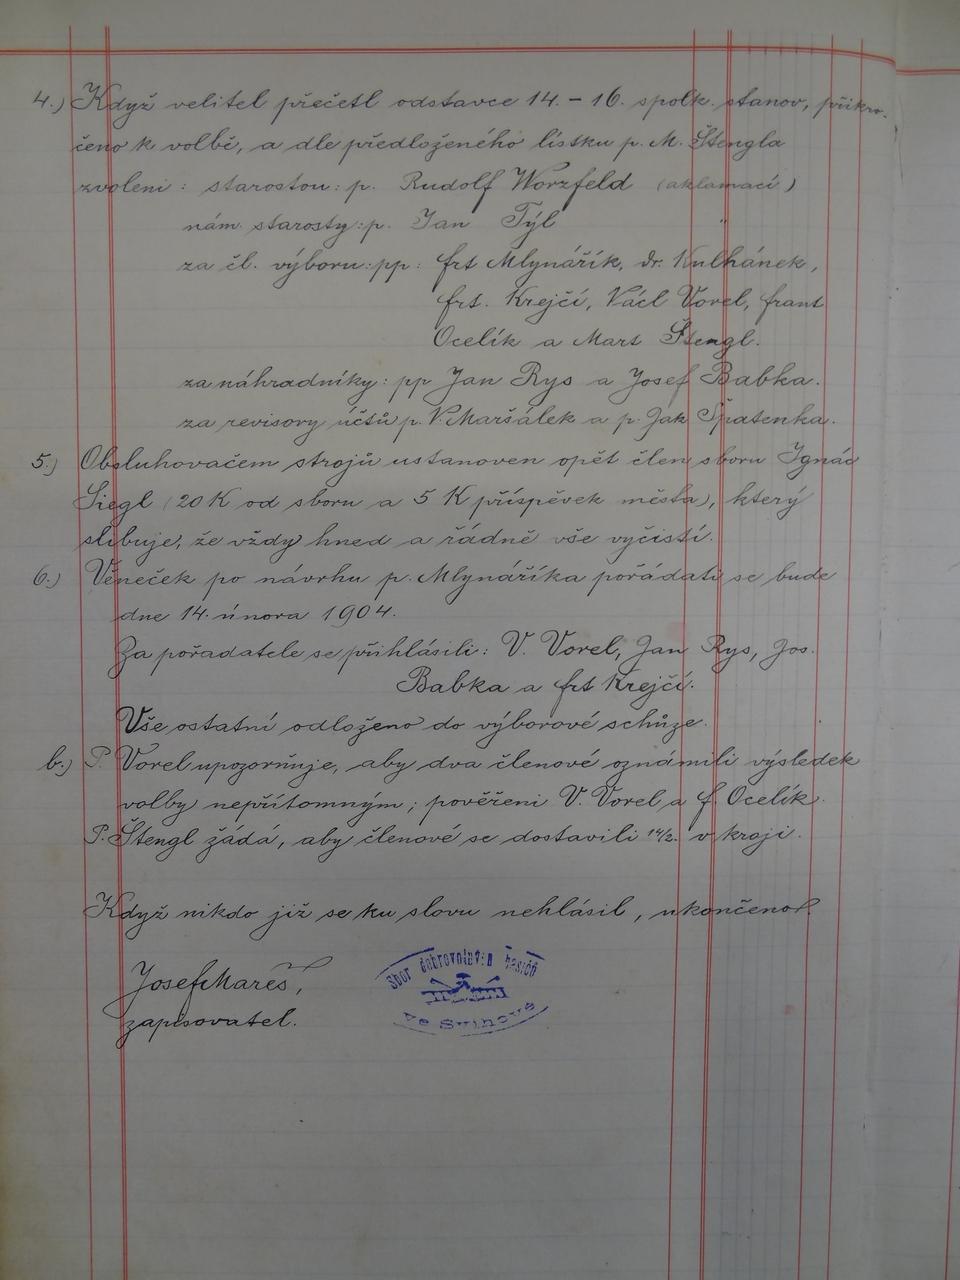 4.) Když velitel přečetl odstavce 14. – 16. spolk. stanov, přikro-
čeno k volbě, a dle předloženého lístku p. M. Štengla
zvoleni : starostou : p. Rudolf Worzfeld (aklamací)
nám. starosty : p. Jan Týl "
za čl. výboru : pp : frt Mlynářík, dr. Kulhánek,
frt. Krejčí, Václ Vorel, frant
Ocelík a Mart Štengl.
za náhradníky : pp Jan Rys a Josef Babka.
za revisory účtů p. V. Maršálek a p. Jak Špatenka.
5.) Obsluhovačem strojů ustanoven opět člen sboru Ignác
Siegl (20 K od sboru a 5 K příspěvek města), který
slibuje, že vždy hned a řádně vše vyčistí.
6.) Věneček po návrhu p. Mlynáříka pořádati se bude
dne 14. února 1904.
Za pořadatele se přihlásili : V. Vorel, Jan Rys, Jos.
Babka a frt Krejčí.
Vše ostatní odloženo do výborové schůze.
b.) P. Vorel upozorňuje, aby dva členové oznámili výsledek
volby nepřítomným ; pověřeni V. Vorel a f. Ocelík.
P. Štengl žádá, aby členové se dostavili 14/2. v kroji.
Když nikdo již se ku slovu nehlásil, ukončeno.
Josef Mareš,
zapisovatel.
Sbor dobrovolných hasičů
ve Švihově